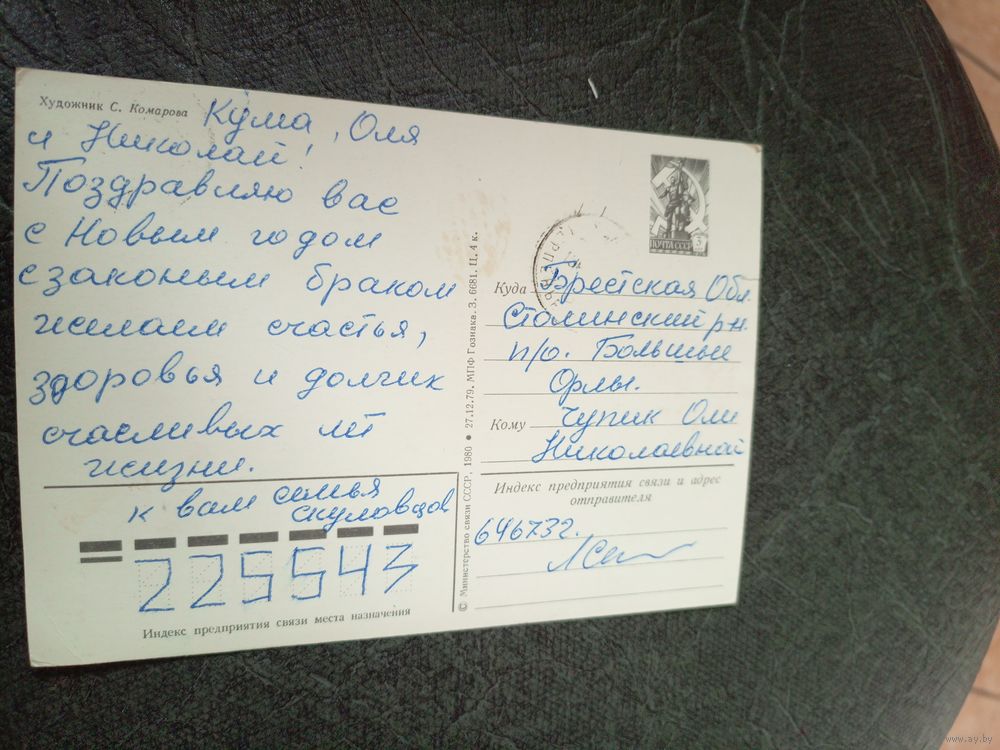 Художник С. Комарова
Кума, Оля
и Николай!
Поздравляю вас
с Новым годом
с законым браком
желаем счастья,
здоровья и долгих
счасливых лет
жизни.
к вам семья
скуловцов
225543
Индекс предприятия связи места назначения
© Министерство связи СССР, 1980 • 27.12.79. МПФ Гознака. З. 6681. Ц. 4 к.
ПОЧТА СССР
Куда Брестская Обл.
Столинский р-н.
п/о. Большые
Орлы.
Кому Чупик Оли
Николаевной
Индекс предприятия связи и адрес
отправителя
646732.
www.ay.by